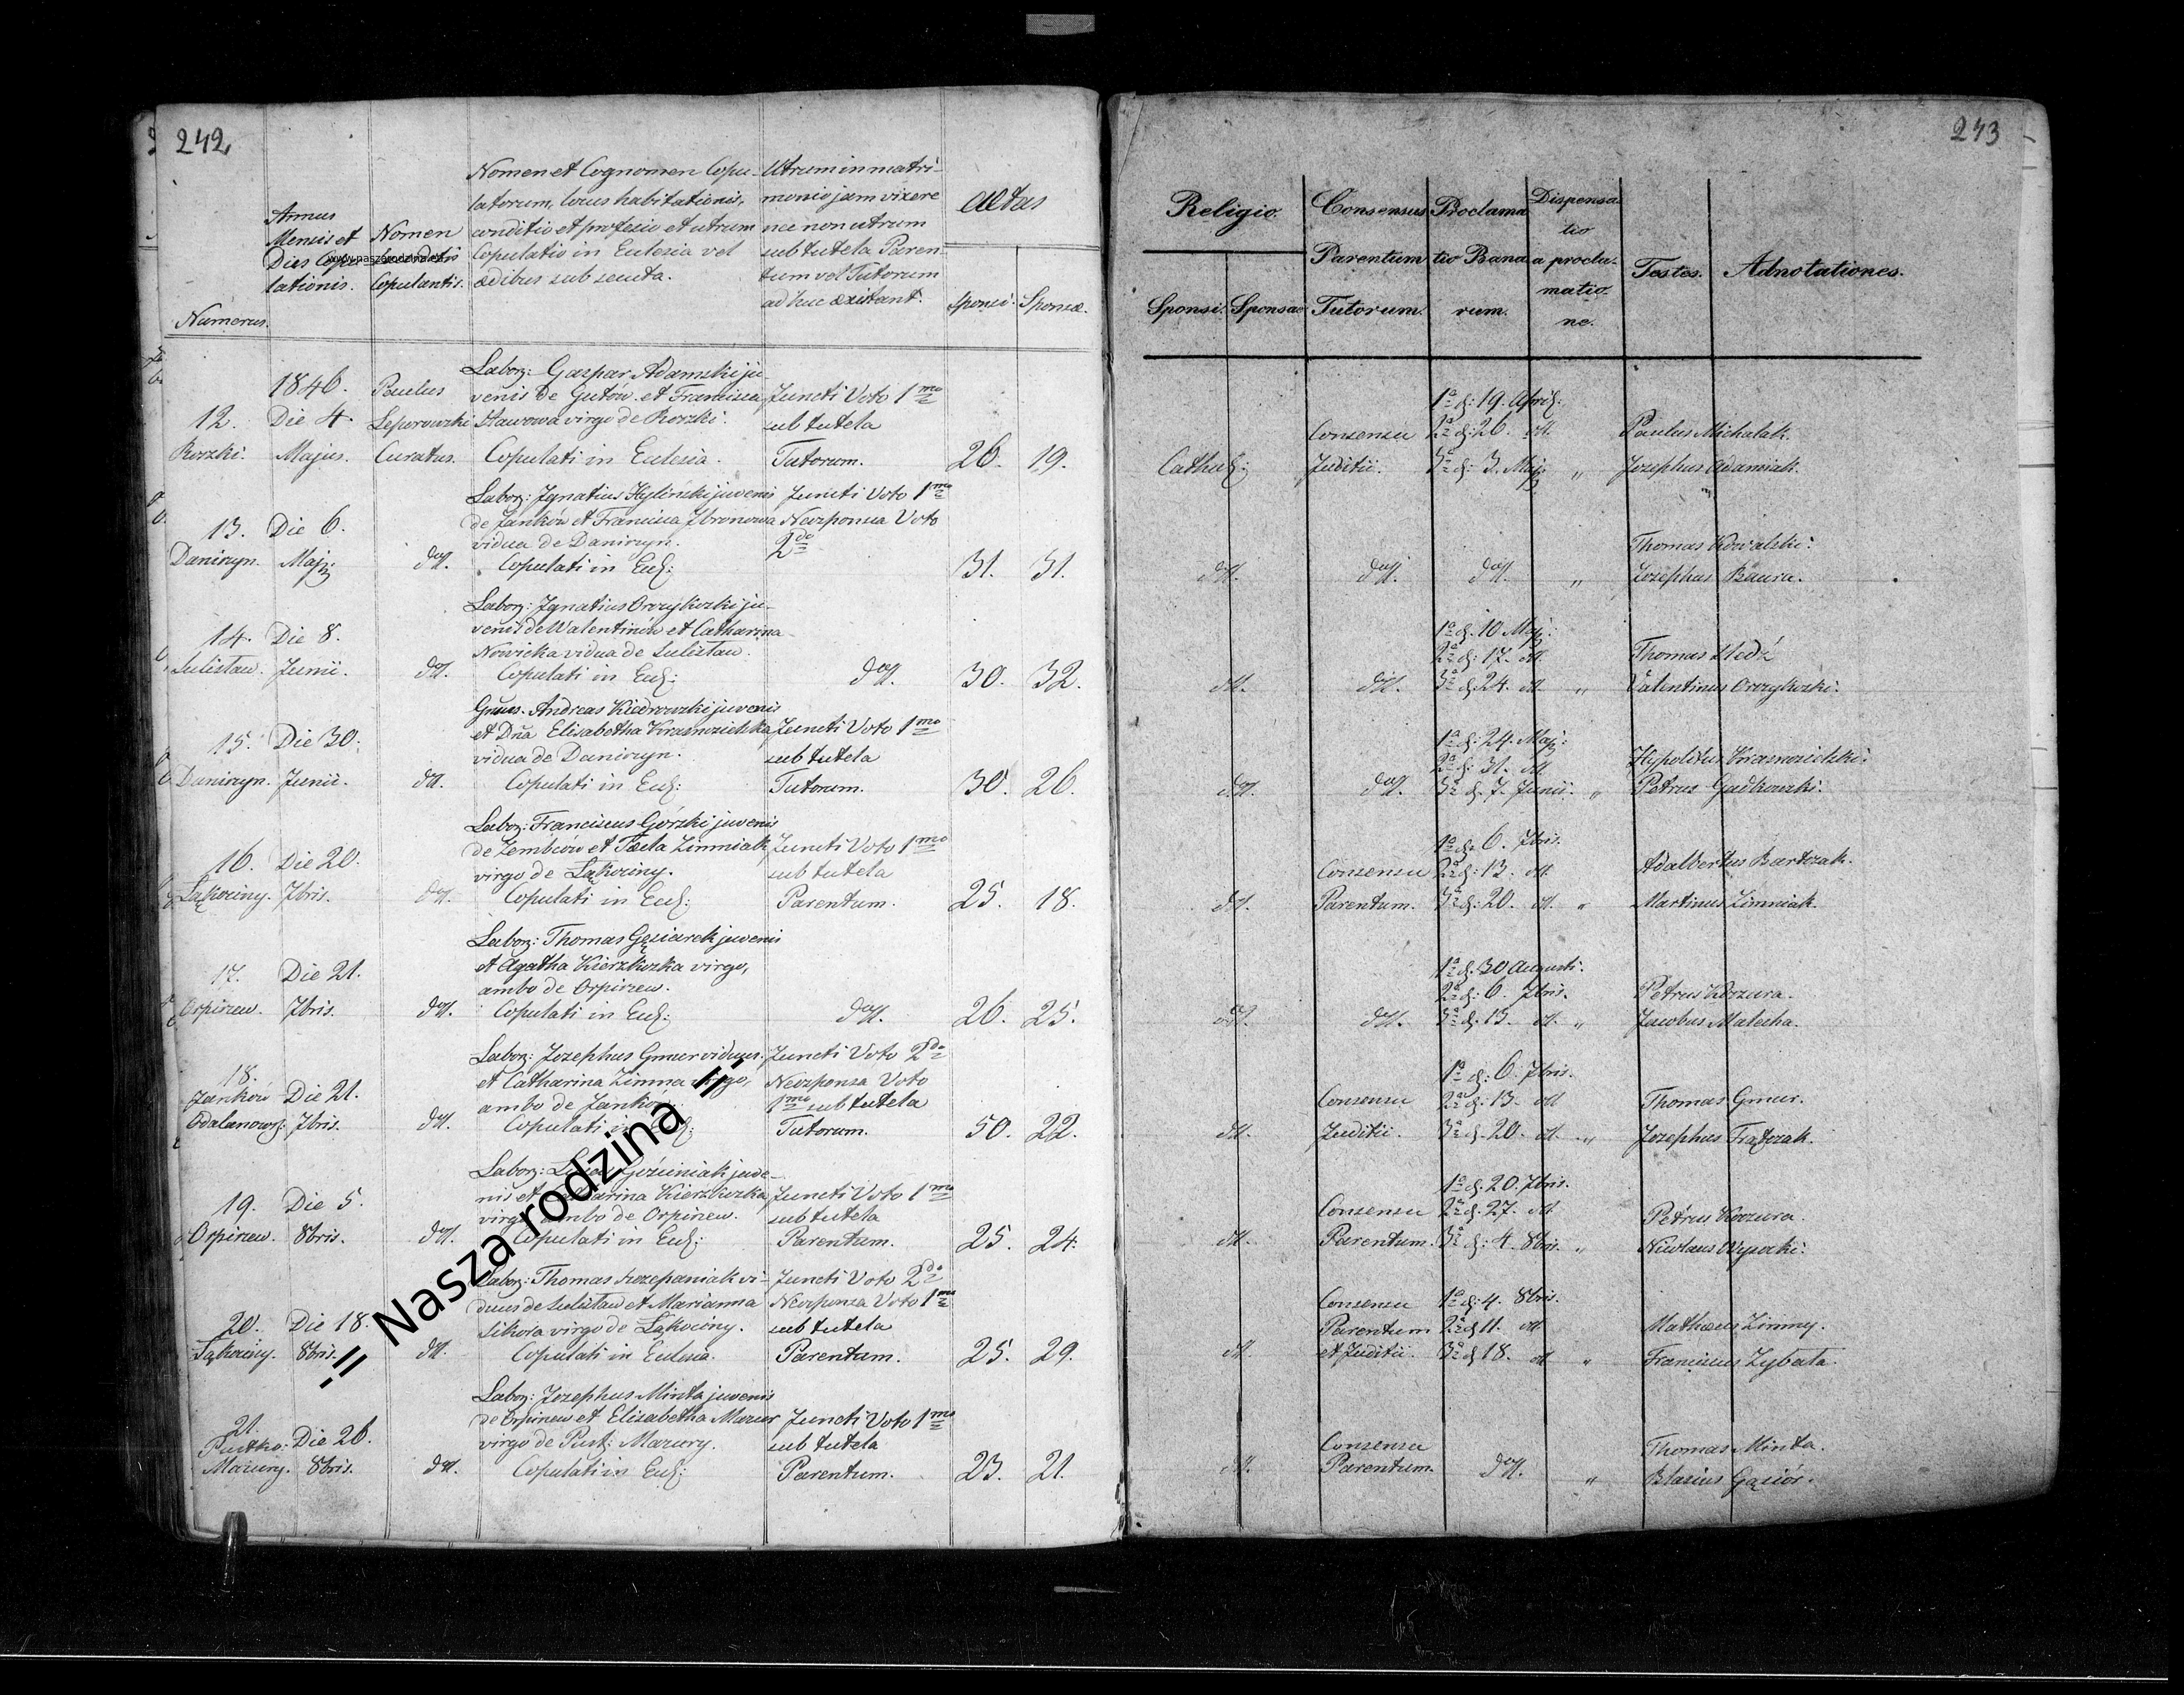 242
Nomen et Cognomen Copu-
latorum, locus habitationis,
conditio et professio et utrum
Copulatio in Eclesia vel
ædibus sub secuta.
Utrum in matri-
monio jam vixere
nec non utrum
sub tutela Paren-
tum vel Tutorum
ad huc existant.
Annus
Mensis et
Dies Copu-
lationis.
Nomen
Copulantis.
www.naszarodzina.eu
Aetas
Sponsi. Sponsæ.
Numerus.
12.
Roszki.
1846.
Die 4.
Majus.
Paulus
Leporowski
Curatus.
Labor: Gaspar Adamski ju
venis de Gutów et Francisca
Stawowa virgo de Roszki.
Copulati in Eclesia.
Juncti Voto 1mo
sub tutela
Tutorum.
26. 19.
13.
Daniszyn.
Die 6.
Maj:
do.
Labor: Ignatius Hylinski juvenis
de Janków et Francisca Zbronowa
vidua de Daniszyn.
Copulati in Ecl:
Juncti Voto 1mo
Neosponsa Voto
2do
31. 31.
14.
Sulistaw.
Die 8.
Junii.
do.
Labor: Ignatius Orzykoski ju-
venis de Walentinów et Catharina
Nowicka vidua de Sulistaw.
Copulati in Ecl:
do.
30. 32.
15.
Daniszyn.
Die 30.
Junii.
do.
Andreas Kiedrowski juvenis
et Dna Elisabetha Krasnosielska
vidua de Daniszyn.
Copulati in Ecl:
Juncti Voto 1mo
sub tutela
Tutorum.
30. 26.
16.
Łąkociny.
Die 20.
7bris.
do.
Labor: Franciscus Górski juvenis
de Zembców et Tecla Zimniak
virgo de Łąkociny.
Copulati in Ecl:
Juncti Voto 1mo
sub tutela
Parentum.
25. 18.
17.
Orpiszew.
Die 21.
7bris.
do.
Labor: Thomas Gęsiarek juvenis
et Agatha Kierzkoska virgo,
ambo de Orpiszew.
Copulati in Ecl:
do.
26. 25.
18.
Janków
Odalanows:
Die 21.
7bris.
do.
Labor: Josephus Gmur viduus.
et Catharina Zimna virgo,
ambo de Janków.
Copulati in Ecl:
Juncti Voto 2do
Neosponsa Voto
1mo sub tutela
Tutorum.
50. 22.
19.
Orpiszew.
Die 5.
8bris.
do.
Labor: Goździniak juve-
nis et Catharina Kierzkoska
virgo ambo de Orpiszew.
Copulati in Ecl:
Juncti Voto 1mo
sub tutela
Parentum.
25. 24.
20.
Łąkociny.
Die 18.
8bris.
do.
Labor: Thomas Szczepaniak vi-
duus de Sulistaw et Marianna
Sikora virgo de Łąkociny.
Copulati in Eclesia.
Juncti Voto 2do
Neosponsa Voto 1mo
sub tutela
Parentum.
25. 29.
21.
Pustko:
Mazury.
Die 26.
8bris.
do.
Labor: Josephus Minta juvenis
de Orpiszew et Elisabetha Mazur
virgo de Pust: Mazury.
Copulati in Ecl:
Juncti Voto 1mo
sub tutela
Parentum.
23. 21.
-=| Nasza rodzina |=-
243
Religio.
Sponsi. Sponsae
Consensus
Parentum
Tutorum.
Proclama
tio Bano
rum.
Dispensa
tio
a procla-
matio-
ne.
Testes.
Adnotationes.
Cathol:
Consensu
Juditii.
1a d: 19. April:
2a d: 26. do.
3a d: 3. Maj: „
Paulus Michalak.
Josephus Adamiak.
do. do. do. „
Thomas Kowalski.
Josephus Baura.
do. do.
1a d. 10 Maj:
2a d: 17. do.
3a d. 24. do. „
Thomas Sledź
Valentinus Orzykoski.
do. do.
1a d: 24. Maj:
2a d: 31. do.
3a d. 7. Junii. „
Hypolitus Krasnosielski.
Petrus Gudkowski.
do.
Consensu
Parentum.
1a d. 6. 7bris.
2a d: 13. do.
3a d: 20. do. „
Adalbertus Bartczak.
Martinus Zimniak.
do. do.
1a d. 30 Augusti.
2a d: 6. 7bris.
3a d. 13. do. „
Petrus Kozura.
Jacobus Malecha.
do.
Consensu
Juditii.
1a d: 6. 7bris.
2a d. 13. do.
3a d. 20. do. „
Thomas Gmur.
Josephus Frątczak.
do.
Consensu
Parentum.
1a d. 20. 7bris.
2a d. 27. do.
3a d: 4. 8bris. „
Petrus Kozura.
Nicolaus Wysocki.
do.
Consensu
Parentum
et Juditii.
1a d: 4. 8bris.
2a d 11. do.
3a d 18. do. „
Mathaeus Zimny.
Franciscus Zybata.
do.
Consensu
Parentum.
do. „
Thomas Minta.
Blasius Gąsiór.